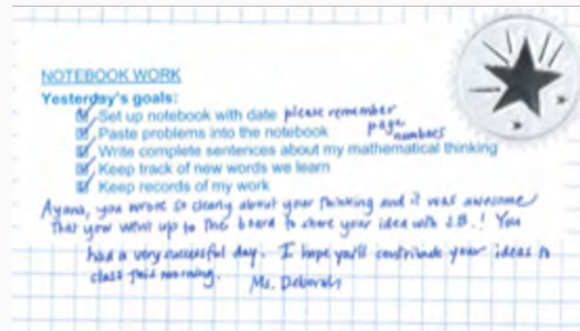 NOTEBOOK WORK
Yesterday's goals:
Set up notebook with date please remember
page numbers
Paste problems into the notebook
Write complete sentences about my mathematical thinking
Keep track of new words we learn
Keep records of my work
Ayana, you wrote so clearly about your thinking and it was awesome
that you went up to the board to share your idea with J.B.! You
had a very successful day. I hope you'll contribute your ideas to
class this morning. Ms. Deborah